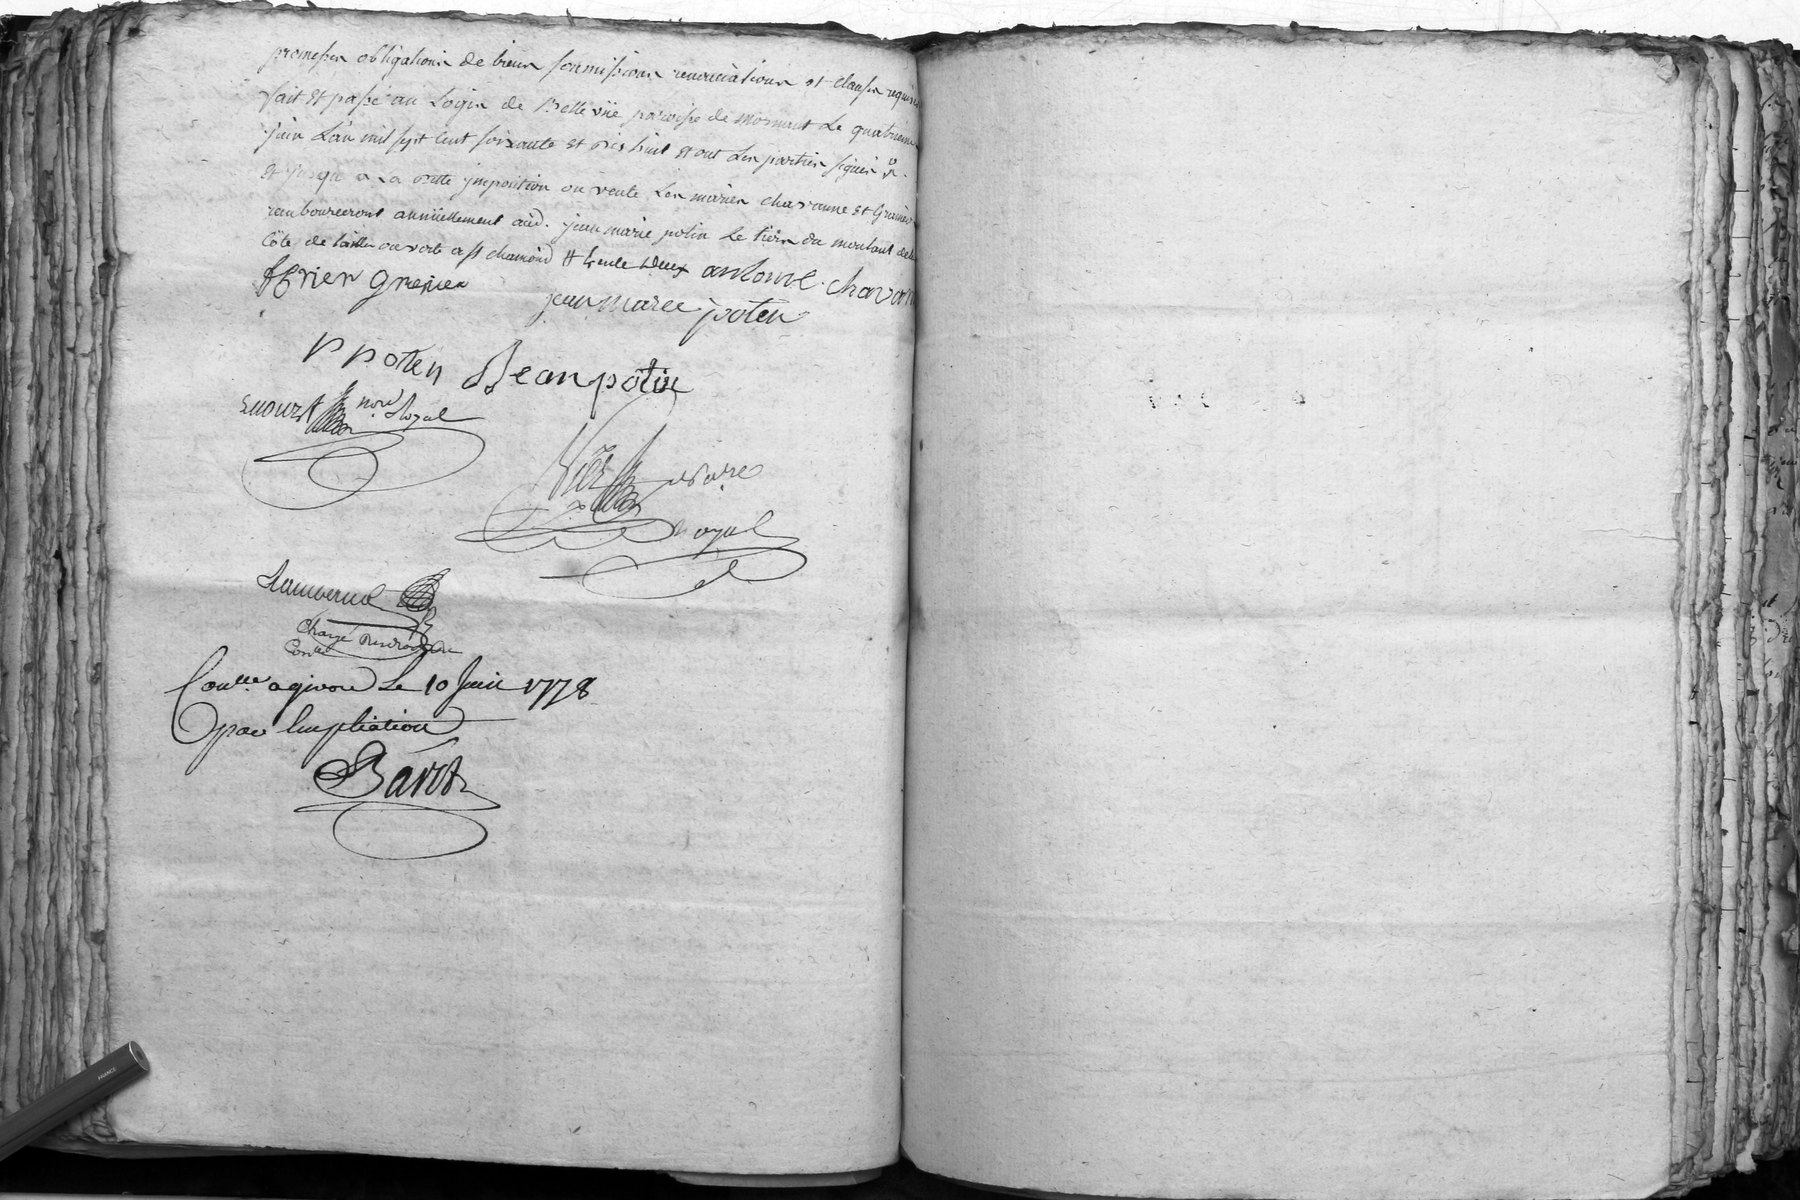 promesses obligations de biens soumissions renonciations et clauses requises
fait et passé au logis de Belle vüe paroisse de Mornant Le quatrieme
juin L'an mil sept cent soixante et dix huit et ont les parties signé
et jusqu'a La ditte jmposition ou vente Les mariés chavanne et Grenier
rembourceront annüellement aud. jean marie potin Le tiers du montant de la
Côte de tailles st chamond trente deux antoine chavan
grenier
jean marie poten
p poten Jean potin
not. Royal
notaire
Royal
Chargé
Con.lle a givors Le 10 Juin 1778
par Ampliation
Barot
FRANCE